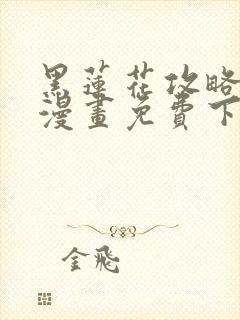 黑蓮花攻略
漫畫免費下
金飛